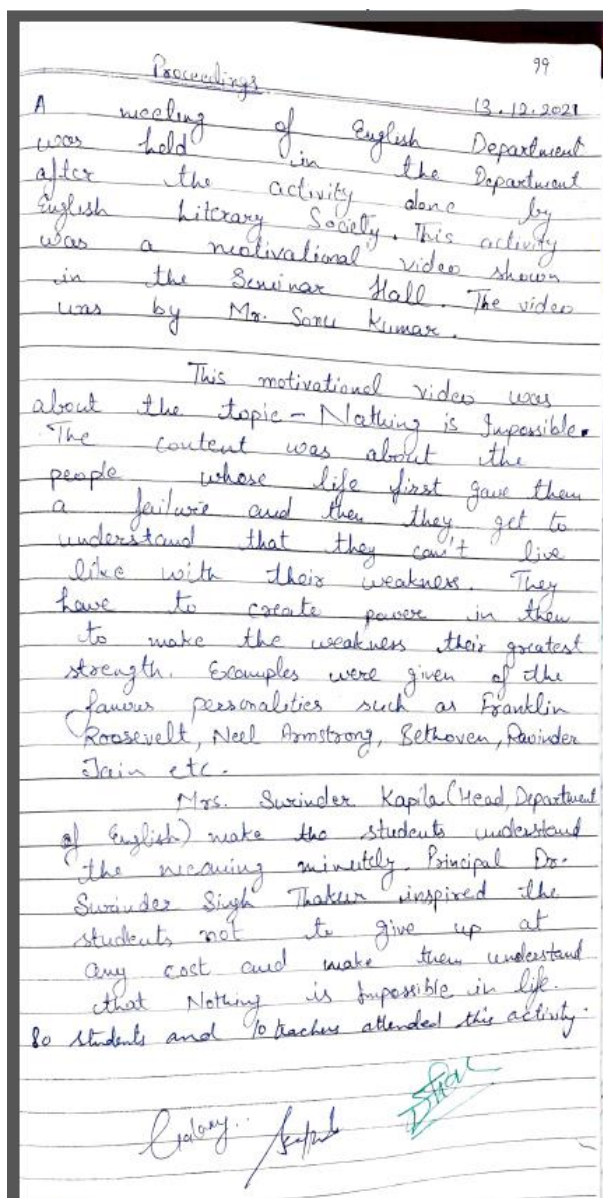 99
Proceedings
13.12.2021
A meeting of English Department
was held in the Department
after the activity done by
English Literary Society. This activity
was a motivational video shown
in the Seminar Hall. The video
was by Mr. Sonu Kumar.
This motivational video was
about the topic - Nothing is Impossible.
The content was about the
people whose life first gave them
a failure and then they get to
understand that they can't live
like with their weakness. They
have to create power in them
to make the weakness their greatest
strength. Examples were given of the
famous personalities such as Franklin
Roosevelt, Neel Armstrong, Bethoven, Ravinder
Jain etc.
Mrs. Surinder Kapila (Head, Department
of English) make the students understand
the meaning minutely. Principal Dr.
Surinder Singh Thakur inspired the
students not to give up at
any cost and make them understand
that Nothing is Impossible in life.
80 students and 10 teachers attended this activity.